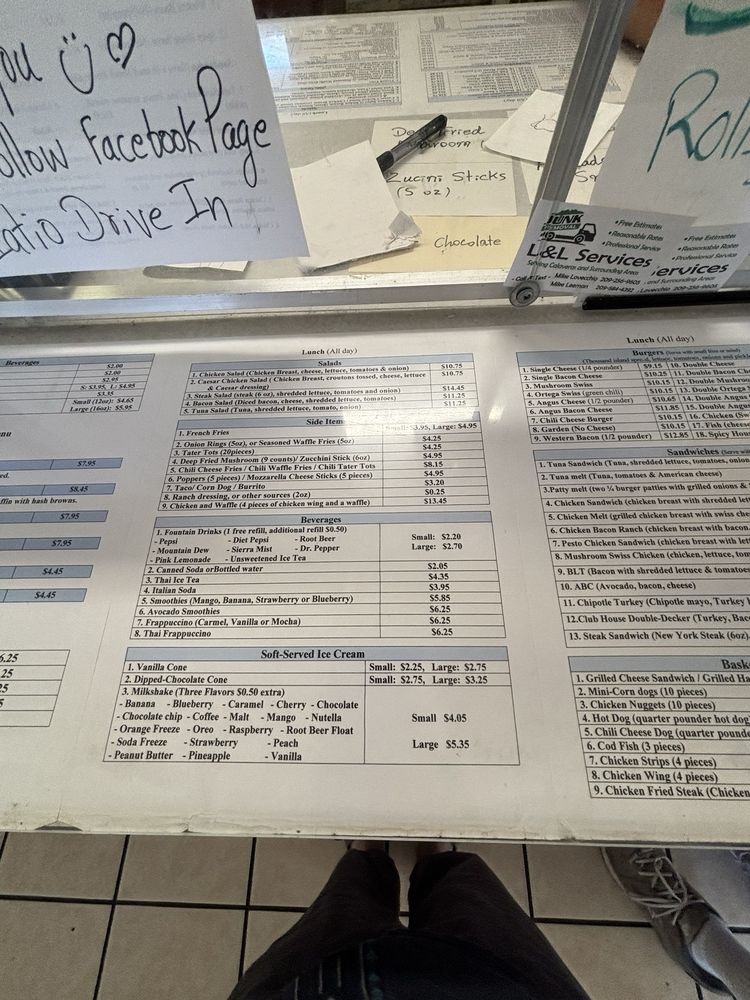 ou
ollow Facebook Page
atio Drive In
Zucini Sticks
(5 oz)
Chocolate
Rol
JUNK
REMOVAL
• Free Estimates
• Reasonable Rates
• Professional Service
L&L Services
Serving Calaveras and Surrounding Areas
Mike Lovecchio 209-256-9605
Mike Leeman 209-984-4392
• Free Estimates
• Reasonable Rates
• Professional Service
ervices
and Surrounding Areas
Beverages
$2.00
$2.00
$2.95
S: $3.95, L: $4.95
$3.35
Small (12oz): $4.65
Large (16oz): $5.95
enu
$7.95
ed.
$8.45
ffin with hash browns.
$7.95
$7.95
$4.45
$4.45
6.25
.25
Lunch (All day)
Salads
1. Chicken Salad (Chicken Breast, cheese, lettuce, tomatoes & onion) $10.75
2. Caesar Chicken Salad ( Chicken Breast, croutons tossed, cheese, lettuce $10.75
& Caesar dressing)
3. Steak Salad (steak (6 oz), shredded lettuce, tomatoes and onion) $14.45
4. Bacon Salad (Diced bacon, cheese, shredded lettuce, tomatoes) $11.25
5. Tuna Salad (Tuna, shredded lettuce, tomato, onion) $11.25
Side Item
1. French Fries Small: $3.95, Large: $4.95
2. Onion Rings (5oz), or Seasoned Waffle Fries (5oz) $4.25
3. Tater Tots (20pieces) $4.25
4. Deep Fried Mushroom (9 counts)/ Zucchini Stick (6oz) $4.95
5. Chili Cheese Fries / Chili Waffle Fries / Chili Tater Tots $8.15
6. Poppers (5 pieces) / Mozzarella Cheese Sticks (5 pieces) $4.95
7. Taco/ Corn Dog / Burrito $3.20
8. Ranch dressing, or other sources (2oz) $0.25
9. Chicken and Waffle (4 pieces of chicken wing and a waffle) $13.45
Beverages
1. Fountain Drinks (1 free refill, additional refill $0.50)
- Pepsi - Diet Pepsi - Root Beer Small: $2.20
- Mountain Dew - Sierra Mist - Dr. Pepper Large: $2.70
- Pink Lemonade - Unsweetened Ice Tea
2. Canned Soda orBottled water $2.05
3. Thai Ice Tea $4.35
4. Italian Soda $3.95
5. Smoothies (Mango, Banana, Strawberry or Blueberry) $5.85
6. Avocado Smoothies $6.25
7. Frappuccino (Carmel, Vanilla or Mocha) $6.25
8. Thai Frappuccino $6.25
Soft-Served Ice Cream
1. Vanilla Cone Small: $2.25, Large: $2.75
2. Dipped-Chocolate Cone Small: $2.75, Large: $3.25
3. Milkshake (Three Flavors $0.50 extra)
- Banana - Blueberry - Caramel - Cherry - Chocolate
- Chocolate chip - Coffee - Malt - Mango - Nutella Small $4.05
- Orange Freeze - Oreo - Raspberry - Root Beer Float
- Soda Freeze - Strawberry - Peach Large $5.35
- Peanut Butter - Pineapple - Vanilla
Lunch (All day)
Burgers
1. Single Cheese (1/4 pound) $9.15 10. Double Cheese
2. Single Bacon Cheese $10.25 11. Double Bacon
3. Mushroom Swiss $10.15 12. Double Mushro
4. Ortega Swiss (green chili) $10.15 13. Double Ortega
5. Angus Cheese (1/2 pound) $10.65 14. Double Angus
6. Angus Bacon Cheese $11.85 15. Double Angu
7. Chili Cheese Burger $10.15 16. Chicken
8. Garden (No Cheese) $10.15 17. Fish
9. Western Bacon (1/2 pounder) $12.85 18. Spicy Hou
Sandwiches
1. Tuna Sandwich (Tuna, shredded lettuce, tomatoes, onion
2. Tuna melt (Tuna, tomatoes & American cheese)
3.Patty melt (two ¼ burger patties with grilled onions &
4. Chicken Sandwich (chicken breast with shredded let
5. Chicken Melt (grilled chicken breast with swiss che
6. Chicken Bacon Ranch (chicken breast with bacon
7. Pesto Chicken Sandwich (chicken breast with lett
8. Mushroom Swiss Chicken (chicken, lettuce, tom
9. BLT (Bacon with shredded lettuce & tomatoe
10. ABC (Avocado, bacon, cheese)
11. Chipotle Turkey (Chipotle mayo, Turkey
12.Club House Double-Decker (Turkey, Bac
13. Steak Sandwich (New York Steak (6oz)
Bask
1. Grilled Cheese Sandwich / Grilled Ha
2. Mini-Corn dogs (10 pieces)
3. Chicken Nuggets (10 pieces)
4. Hot Dog (quarter pounder hot dog
5. Chili Cheese Dog (quarter pounde
6. Cod Fish (3 pieces)
7. Chicken Strips (4 pieces)
8. Chicken Wing (4 pieces)
9. Chicken Fried Steak (Chicken